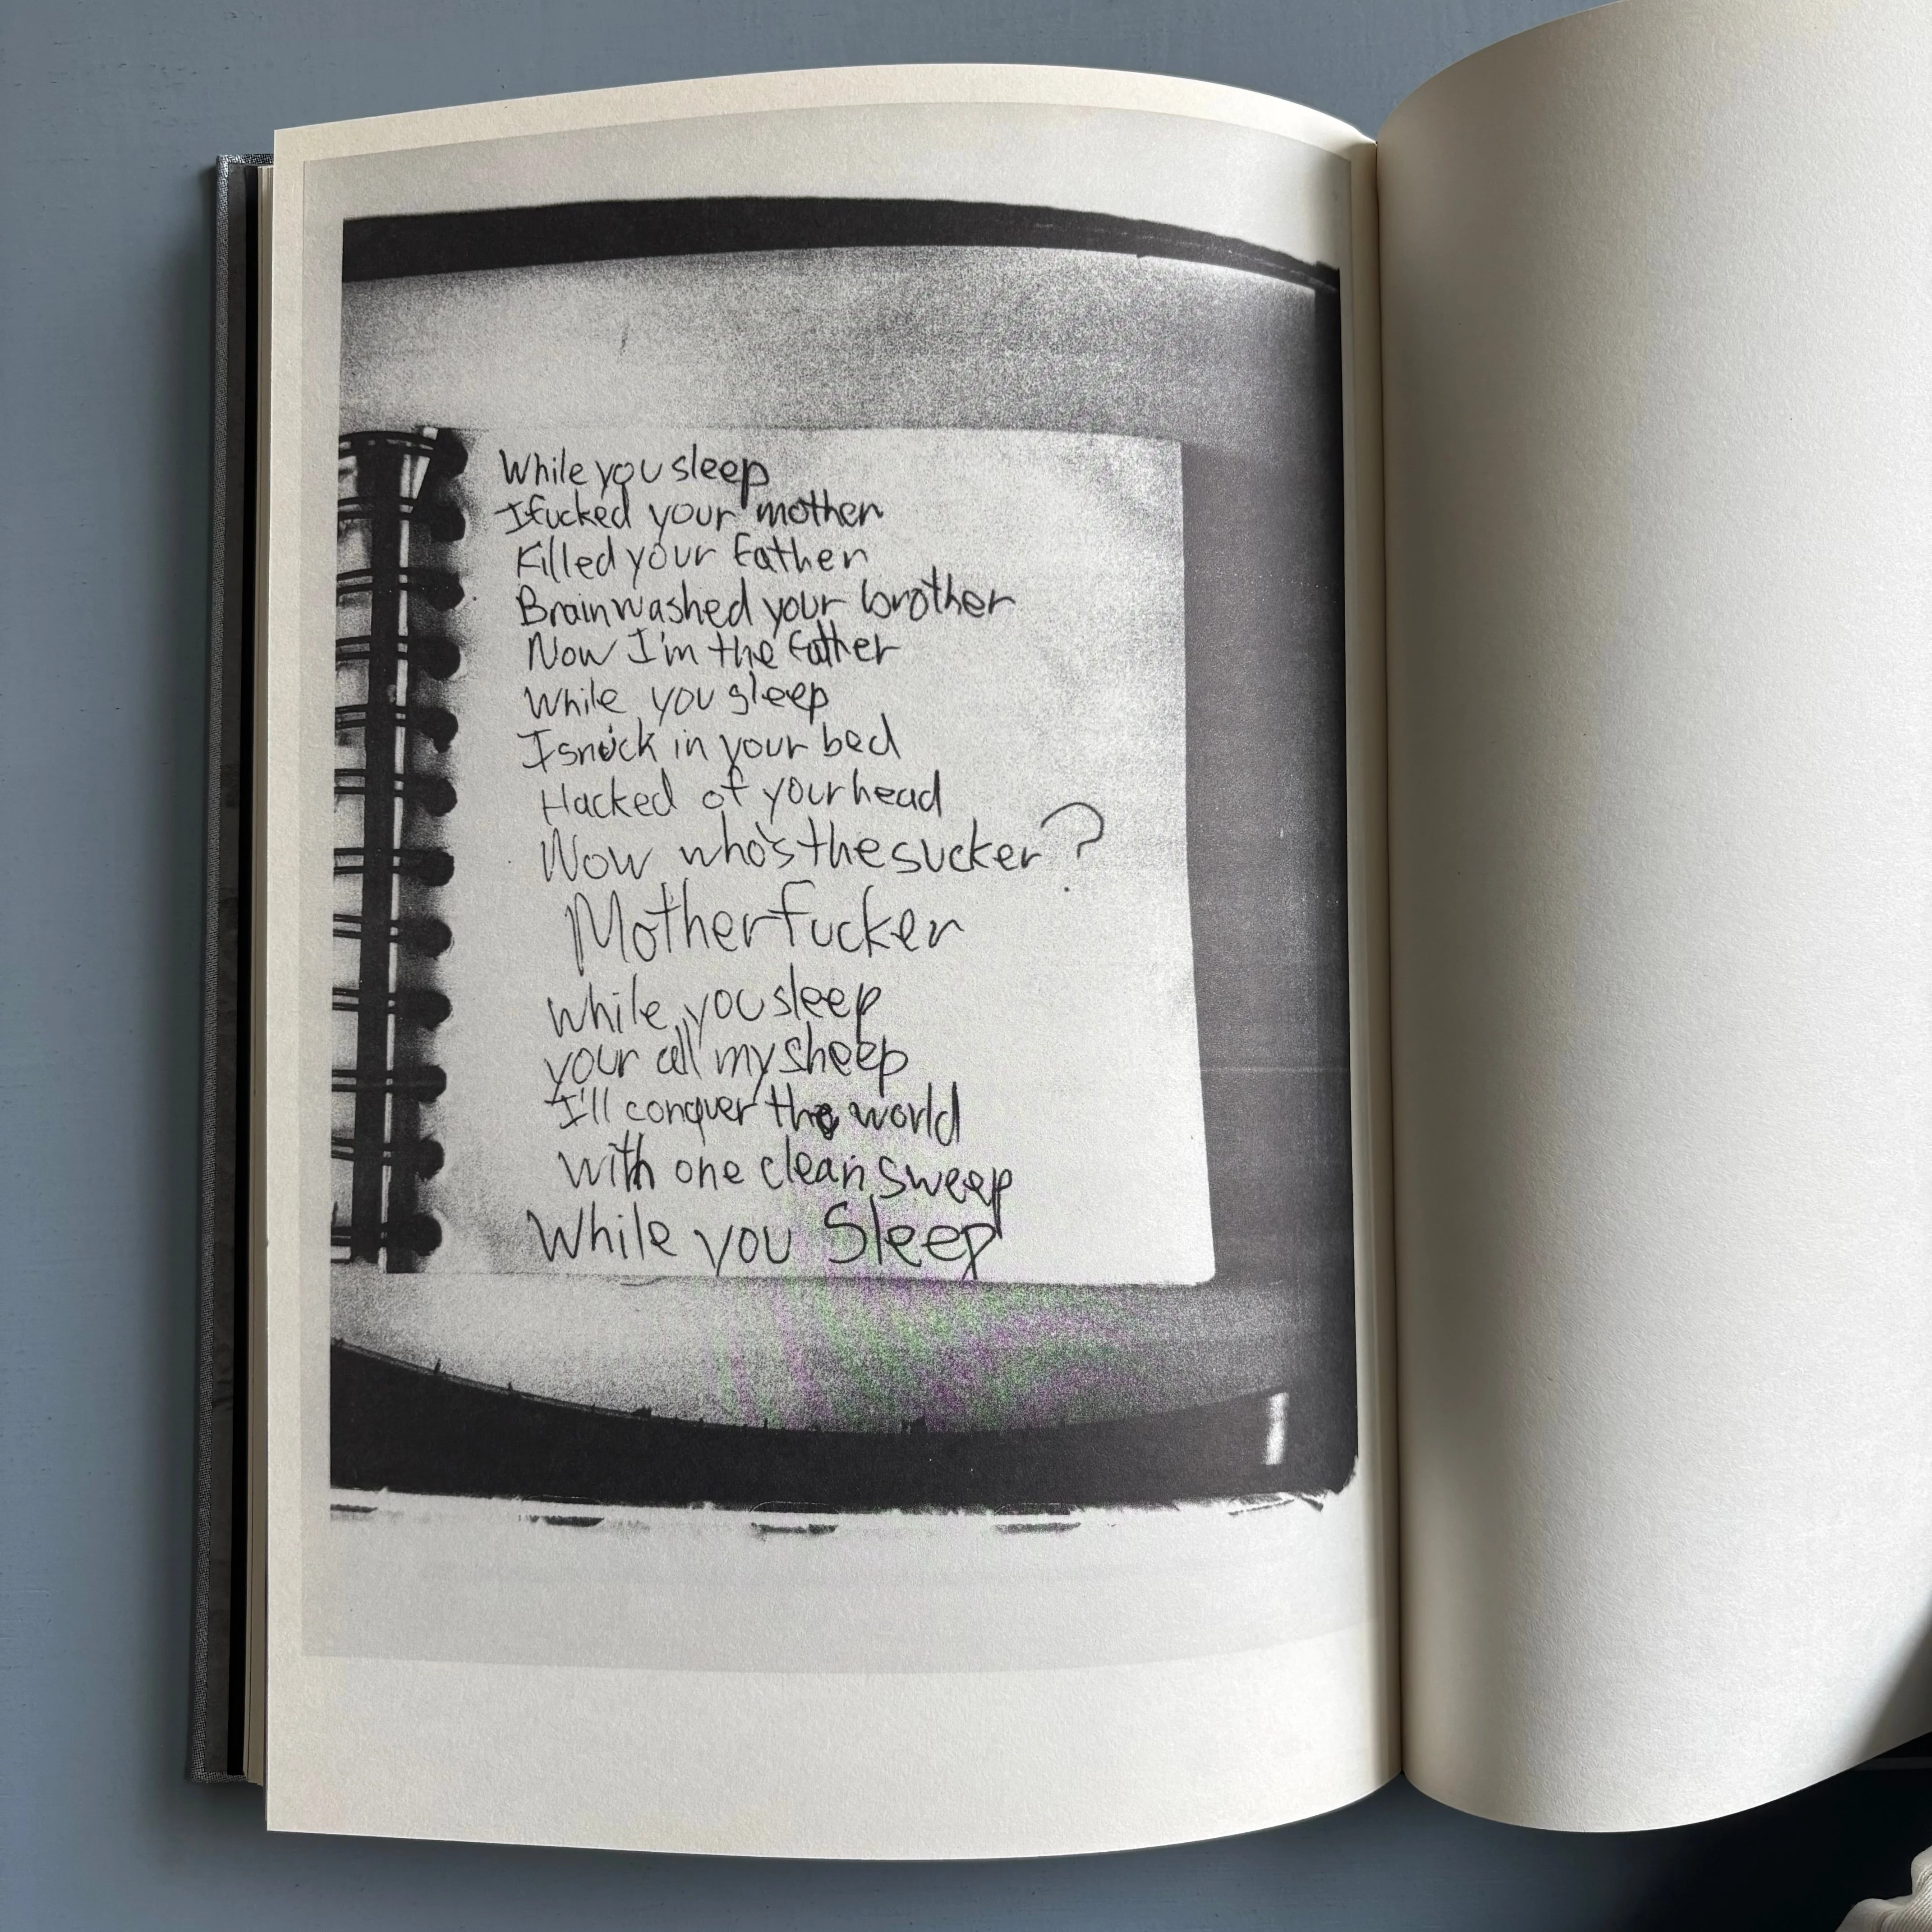 While you sleep
I fucked your mother
Killed your father
Brainwashed your brother
Now I'm the father
While you sleep
I snuck in your bed
Hacked of your head
Now who's the sucker?
Motherfucker
While you sleep
your all my sheep
I'll conquer the world
with one clean sweep
While you Sleep